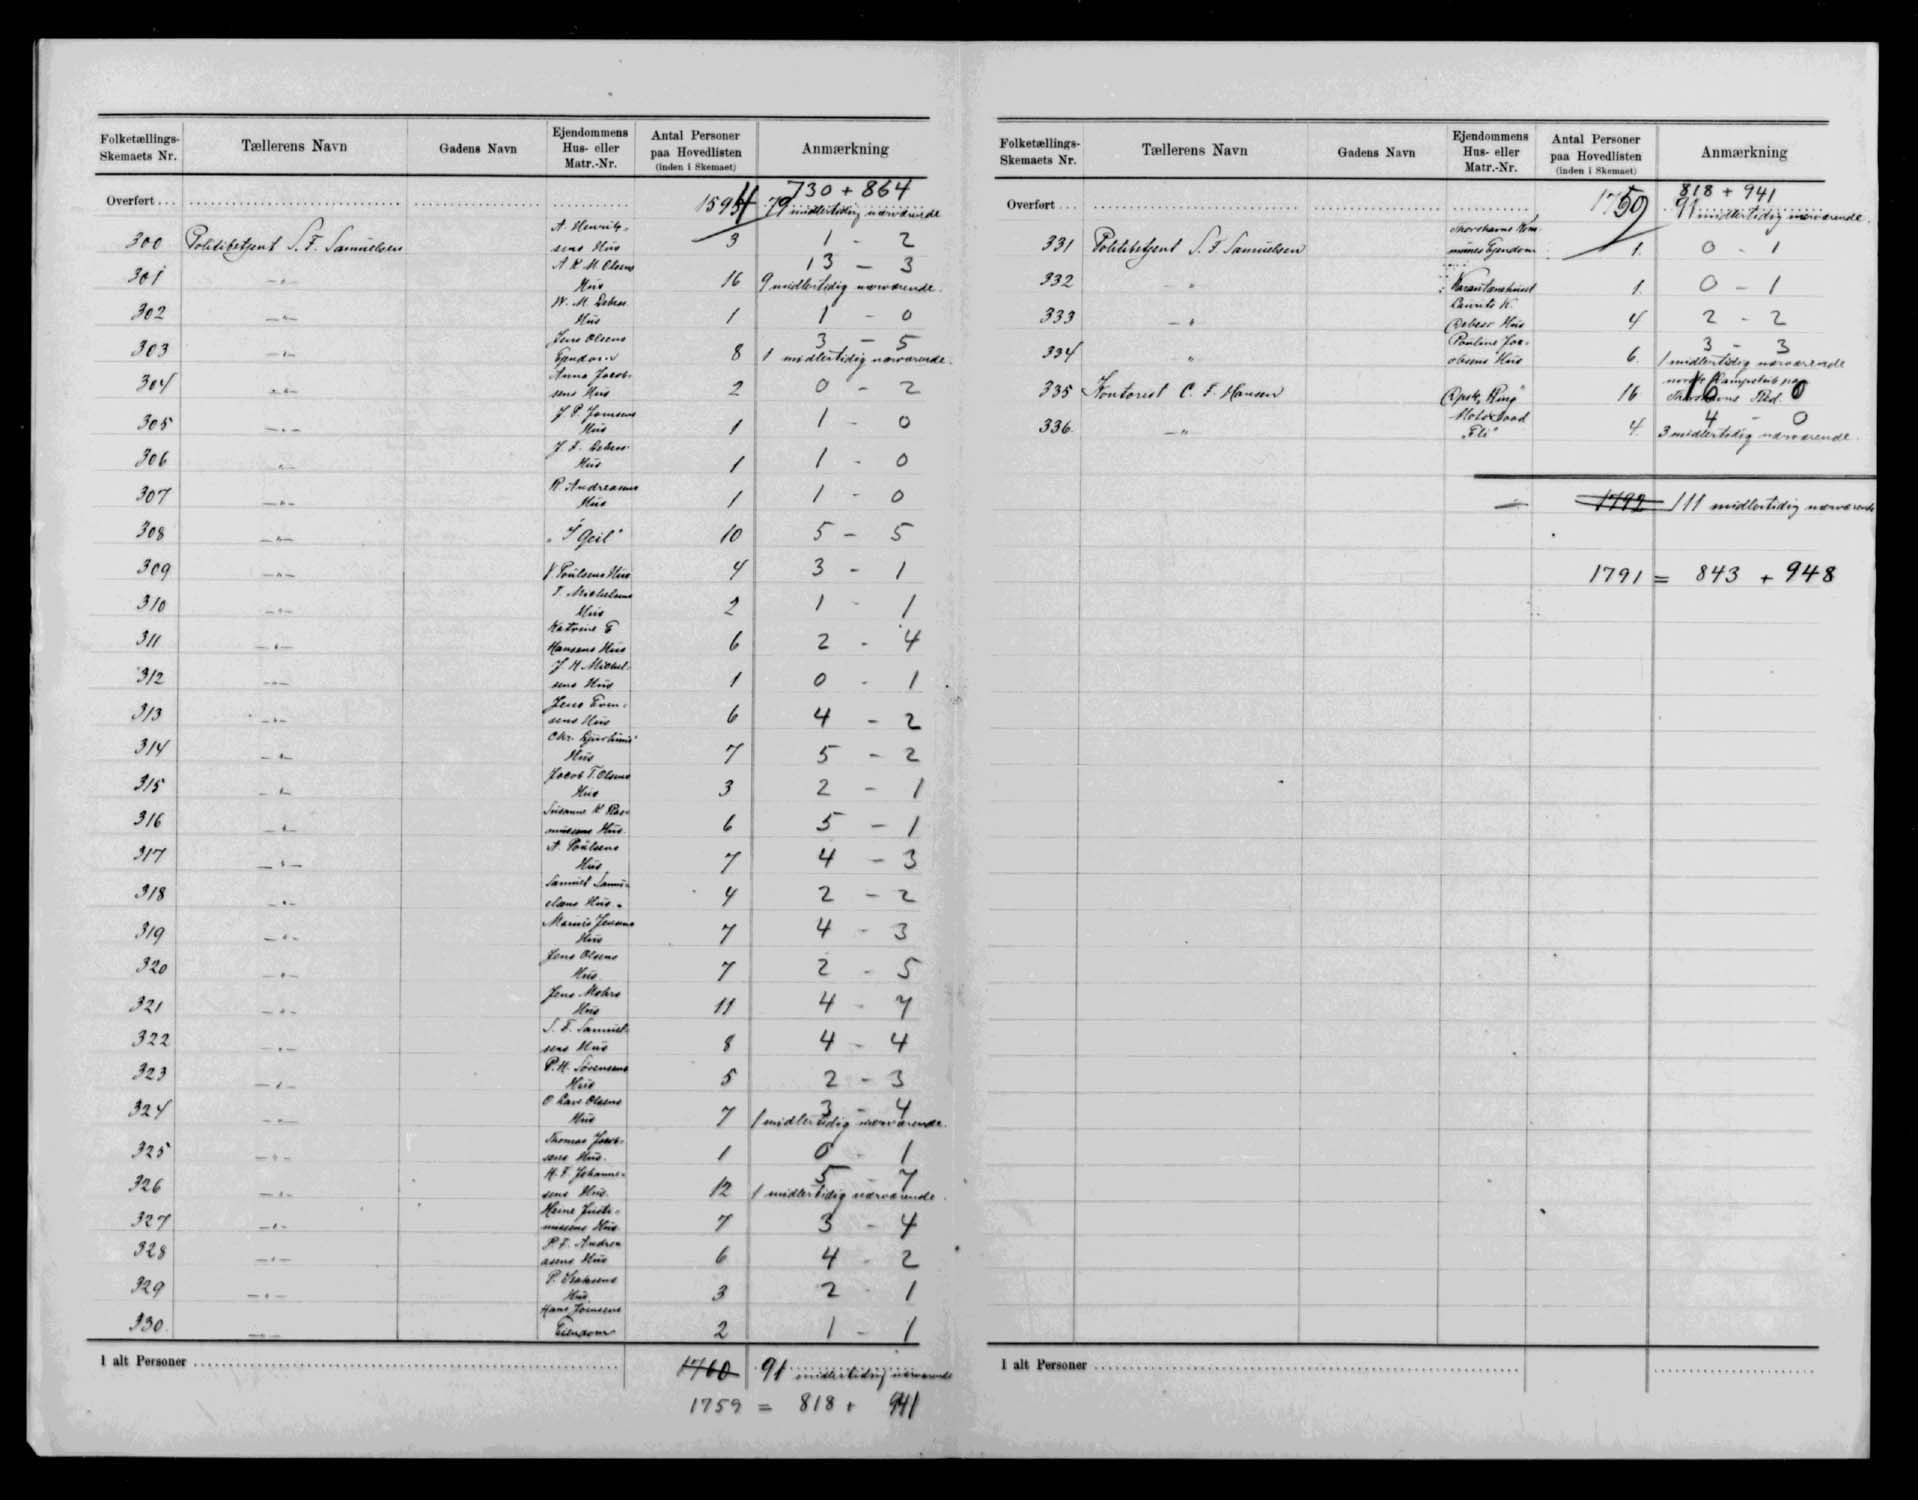 Folketællings-Skemaets Nr. Tællerens Navn Gadens Navn Ejendommens Hus- eller Matr.-Nr. Antal Personer paa Hovedlisten (inden i Skemaet) Anmærkning
Overført 1594 730 + 864 79 midlertidig nærværende
300 Politibetjent S. F. Samuelsen A. Henriksens Hus 3 1 - 2
301 —"— A K M Olsens Hus 16 13 - 3 9 midlertidig nærværende.
302 —"— W. M. Debess Hus 1 1 - 0
303 —"— Jens Olsens Ejendom 8 3 - 5 1 midlertidig nærværende.
304 —"— Anna Jacobsens Hus 2 0 - 2
305 —"— J. P. Joensens Hus 1 1 - 0
306 " J. F. Debess Hus 1 1 - 0
307 —"— R Andreasens Hus 1 1 - 0
308 —"— "I Geil" 10 5 - 5
309 —"— J Poulsens Hus 4 3 - 1
310 —"— Michelsens Hus 2 1 - 1
311 —"— Katrine E Hansens Hus 6 2 - 4
312 —"— J H Michelsens Hus 1 0 - 1
313 —"— Jens Evensens Hus 6 4 - 2
314 —"— Chr. Hus 7 5 - 2
315 —"— Jacob T. Olsens Hus 3 2 - 1
316 —"— Susanne K Rasmussens Hus 6 5 - 1
317 —"— A. Poulsens Hus 7 4 - 3
318 —"— Samuel Samuelsens Hus 4 2 - 2
319 —"— Marius Jensens Hus 7 4 - 3
320 —"— Jens Olsens Hus 7 2 - 5
321 —"— Jens Mohrs Hus 11 4 - 7
322 —"— S. F. Samuelsens Hus 8 4 - 4
323 —"— P. H. Sørensens Hus 5 2 - 3
324 —"— O Olsens Hus 7 3 - 4 1 midlertidig nærværende.
325 —"— Thomas Jacobsens Hus. 1 0 - 1
326 —"— H. F. Johannesens Hus. 12 5 - 7 1 midlertidig nærværende.
327 —"— Heine Justinussens Hus 7 3 - 4
328 —"— P. F. Andreasens Hus 6 4 - 2
329 —"— P. Isaksens Hus 3 2 - 1
330. —"— Hans Joensens Ejendom 2 1 - 1
I alt Personer 1760 91 midlertidig nærværende
1759 = 818 + 941
Folketællings-Skemaets Nr. Tællerens Navn Gadens Navn Ejendommens Hus- eller Matr.-Nr. Antal Personer paa Hovedlisten (inden i Skemaet) Anmærkning
Overført 1759 818 + 941 91 midlertidig nærværende.
331 Politibetjent S. F. Samuelsen Thorshavns Kommunes Ejendom 1. 0 - 1
332 " Karantænehuset 1. 0 - 1
333 —" Laurits K. Debess Hus 4 2 - 2
334 " Pauline Jacobsens Hus 6. 3 - 3 1 midlertidig nærværende
335 Kontorist C. F. Hansen "Ring" 16 16 0
336. —"— "Fli" 4. 4 - 0 3 midlertidig nærværende.
1792 111 midlertidig nærværende
1791 = 843 + 948
I alt Personer